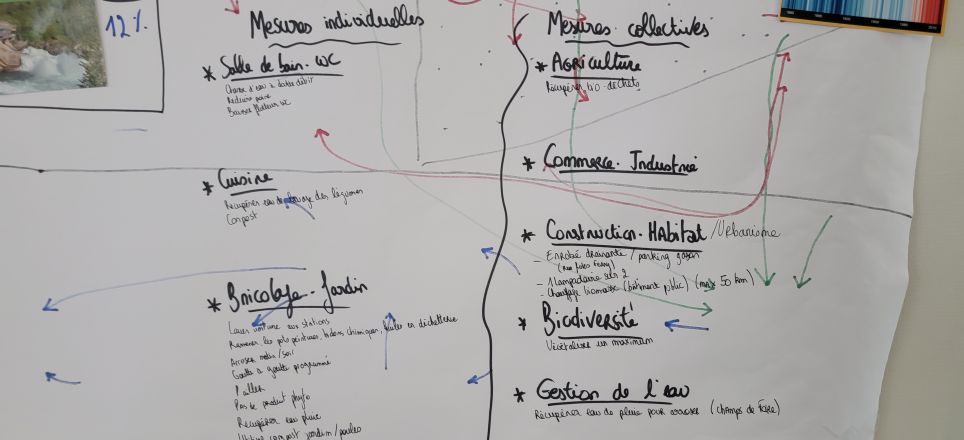 12%
Mesures individuelles
* Salle de bain. WC
Chasse d'eau à double débit
* Cuisine
Récupérer eau de lavage des légumes
Compost
* Bricolage - Jardin
Laver voiture aux stations
Ramener les pots peintures, bidons chimiques, huiles en déchetterie
Arroser matin/soir
Goutte à goutte programmé
Pailler
Pas de produit phyto
Récupérer eau pluie
Utiliser compost jardin/poules
Mesures collectives
* Agriculture
Récupérer bio-déchets
* Commerce. Industrie
* Construction. Habitat /Urbanisme
- Enrobé drainante / parking gazon
- 1 lampadaire sur 2
- Chauffage biomasse (bâtiment public) (max 50 km)
* Biodiversité
Végétaliser un maximum
* Gestion de l'eau
Récupérer eau de pluie pour arroser (champs de foire)